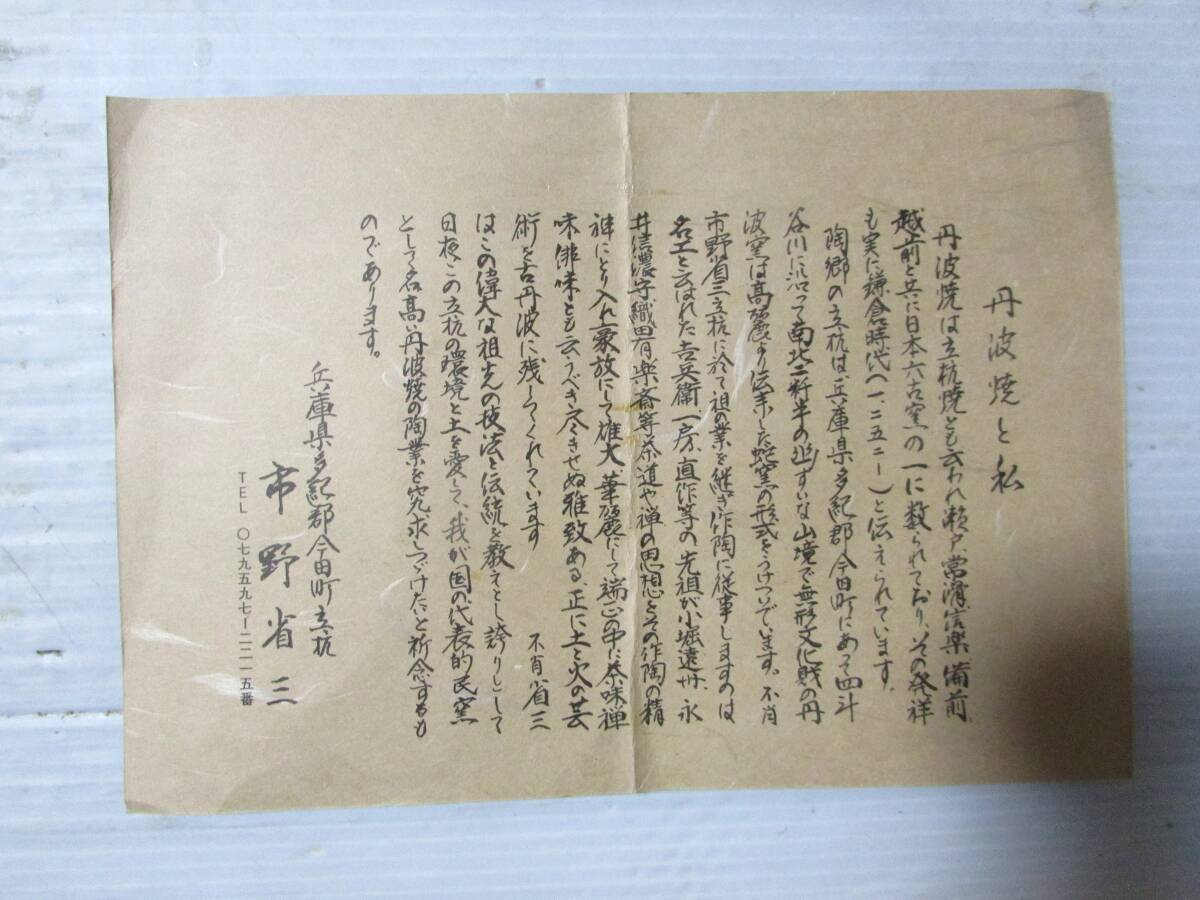 丹波焼と私
丹波焼は立杭焼とも云われ瀬戸常滑信楽備前
越前と共に日本六古窯の一に数られており、その発祥
も実に鎌倉時代(一、二五二ー)と伝えられています。
陶郷の立杭は、兵庫県多紀郡今田町にあって四斗
谷川に沿って南北二粁半の山すいな山境で無形文化財の丹
波窯は高麗より伝来した蛇窯の形式をうけついでいます。不肖
市野省三立杭に於て祖の業を継ぎ作陶に従事しますのは
名工と云はれた吉兵衛一房、直作等の先祖が小堀遠州、永
井信濃守織田有楽斎等茶道や禅の思想とその作陶の精
神にとり入れ豪放にして雄大、華麗にして端正の中に茶味禅
味俳味とも云うべき尽きせぬ雅致ある、正に土と火の芸
術を古丹波に残してくれています 不肖省三
はこの偉大な祖先の技法と伝統を教えとし誇りとして
日夜この立杭の環境と土を愛して、我が国の代表的民窯
として名高い丹波焼の陶業を究求しつづけたいと祈念するも
のであります。
兵庫県多紀郡今田町立杭
市野省三
TEL 〇七九五九七ー二二一五番